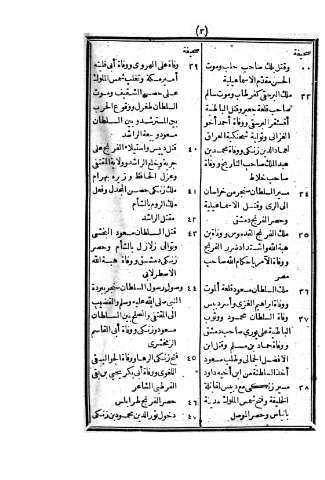 (٣)
صحيفة
٠٠ وقتل بلك صاحب حلب وموت
الحسن مقدم الاسماعيلية
٣٢ ملك البرسقى كفرطاب وموت
صاحب قلعة جعبر وقتل الباطنية
أقسنقر البرسقى ووفاة أحد أخو
الغزالى وتولية شحنكية العراق
عماد الدين زنكى ووفاة محمد بن
عبد الملك صاحب التاريخ ووفاة
صاحب خلاط
٣٤ مسير السلطان سنجر من خراسان
الى الرى وقتل الاسماعيلية
وحصر الفرنج دمشق
٣٥ ملك الفرنج القدموس ووفاة بن
هبة الله واشتداد ضرر الفرنج
ووفاة الآمر بأحكام الله صاحب
مصر
٣٦ ملك السلطان مسعود قلعة ألموت
ووفاة ابراهيم الغزى وأسر دبيس
٣٧ وفاة السلطان محمود ووثوب
الباطنية على تورى صاحب دمشق
ووفاة حماد بن مسلم وقتل ابن
الافضل الجمالى وطلب مسعود
أخذ السلطنة من ابن أخيه داود
٣٨ مسير زنكى مع دبيس لقتال
الخليفة وفتح شمس الملوك مدينة
بانياس وحصر الموصل
صحيفة
٣٩ وفاة على الهروى ووفاة أبى فليتة
أمير مكة وتغلب شمس الملوك
على حصن الشقيف وموت
السلطان طغرل ووقوع الحرب
بين المسترشد وبين السلطان
مسعود وبيعة الراشد
٤٠ قتل دبيس واستيلاء الفرنج على
جربة وخلع الراشد وولاية المقتفى
وعزل الحافظ وزيره بهرام
٤١ ملك زنكى حصن المجدل وفعل
ملك الروم بالشام
٤٢ مقتل الراشد
٤٣ قتل السلطان مسعود البخشى
وتوالى زلازل بالشام وحصر
زنكى دمشق ووفاة هبة الله
الاصطرلابى
٤٤ وصول رسول السلطان سنجر ببردة
النبى صلى الله عليه وسلم والقضيب
الى المقتفى والصلح بين السلطان
مسعود وزنكى ووفاة أبى القاسم
الزمخشرى
٤٥ فتح زنكى الرها ووفاة الجواليقى
اللغوى ووفاة أبى بكر يحيى بن بقى
القرطبى الشاعر
٤٦ حصر الفرنج طرابلس
٤٧ دخول نور الدين محمود بن زنكى